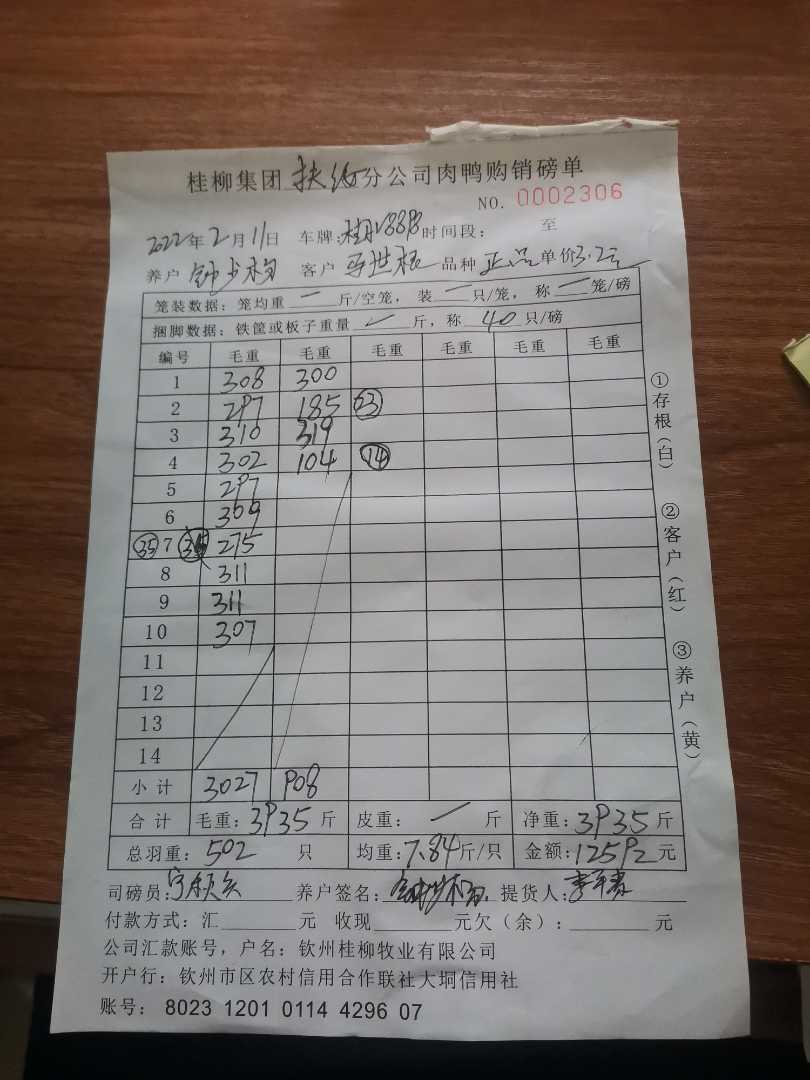 桂柳集团扶绥分公司肉鸭购销磅单
NO. 0002306
2022年2月11日 车牌: 时间段: 至
养户 客户 品种 正品 单价3.2元
笼装数据: 笼均重 一 斤/空笼, 装 一 只/笼, 称 一 笼/磅
捆脚数据: 铁筐或板子重量 斤, 称 40 只/磅
编号 毛重 毛重 毛重 毛重 毛重 毛重
1 308 300
2 297 185 23
3 310 319
4 302 104 14
5 297
6 309
35 7 275
8 311
9 311
10 307
11
12
13
14
小计 3027 908
合计 毛重: 3935 斤 皮重: 一 斤 净重: 3935 斤
总羽重: 502 只 均重: 7.84 斤/只 金额: 12592 元
司磅员: 养户签名: 提货人:
付款方式: 汇 元 收现 元欠(余): 元
公司汇款账号, 户名: 钦州桂柳牧业有限公司
开户行: 钦州市区农村信用合作联社大垌信用社
账号: 8023 1201 0114 4296 07
①存根(白)
②客户(红)
③养户(黄)